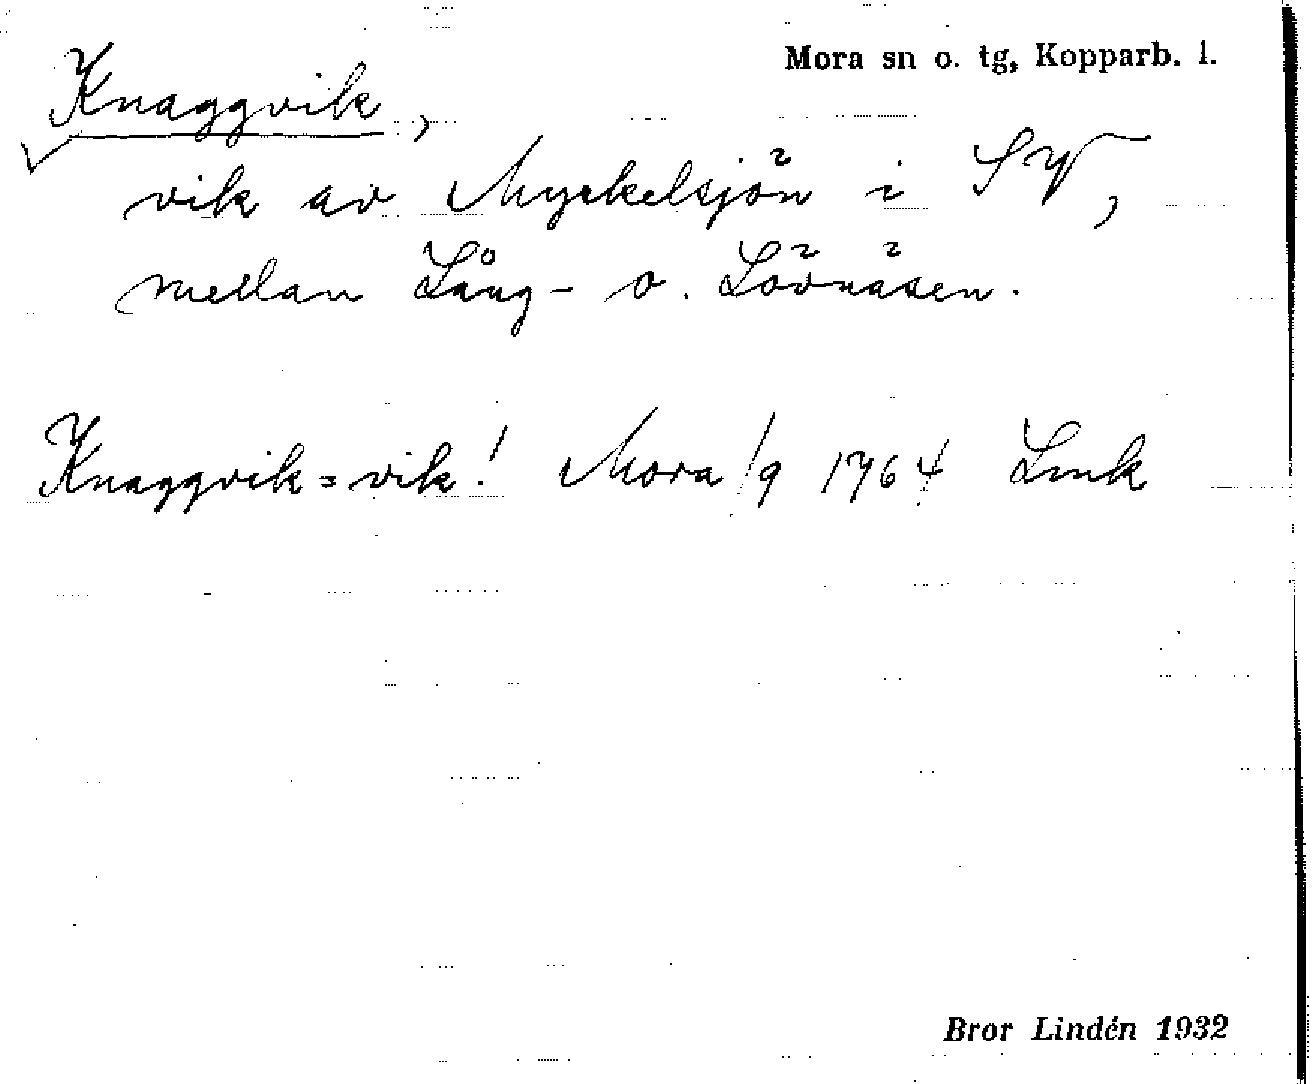 Mora sn o. tg, Kopparb. l.
Knaggvik,
vik av Myckelsjön i SV,
mellan Lång- o. Lövnäsen.
Knaggvik = vik! Mora 1/9 1764 Lmk
Bror Lindén 1932